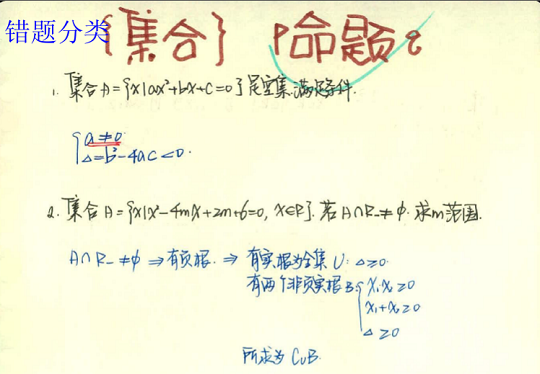 错题分类
{集合} p命题q
1. 集合A={x|ax²+bx+c=0}是空集.满足条件.
{a≠0
Δ=b²-4ac<0.
2. 集合A={x|x²-4mx+2m+6=0, x∈R}. 若A∩R₋≠ϕ. 求m范围.
A∩R₋≠ϕ ⇒有负根. ⇒ 有实根为全集U: Δ≥0.
有两个非负实根B:{x₁x₂≥0
x₁+x₂≥0
Δ≥0
所求为CuB.